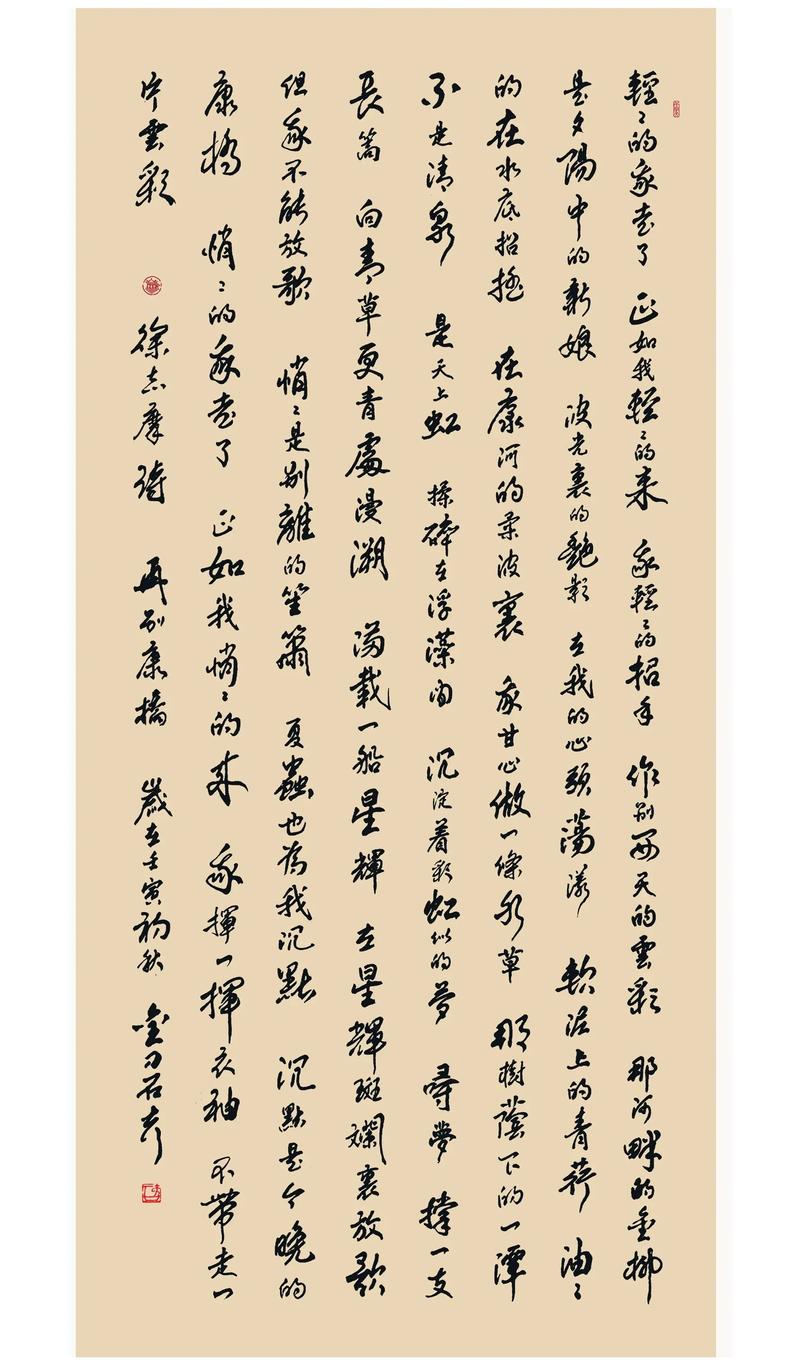 輕〻的我走了 正如我輕〻的来 我輕〻的招手 作别西天的雲彩 那河畔的金柳
是夕陽中的新娘 波光裏的艷影 在我的心頭蕩漾 軟泥上的青荇 油〻
的在水底招摇 在康河的柔波裏 我甘心做一條水草 那樹蔭下的一潭
不是清泉 是天上虹 揉碎在浮藻间 沉淀着彩虹似的夢 尋夢 撑一支
長篙 向青草更青處漫溯 滿載一船星輝 在星輝斑斓裏放歌
但我不能放歌 悄〻是别離的笙簫 夏蟲也為我沉默 沉默是今晚的
康橋 悄〻的我走了 正如我悄〻的来 我揮一揮衣袖 不带走一
片雲彩 徐志摩詩 再别康橋 歲在壬寅初秋 金刀石奇